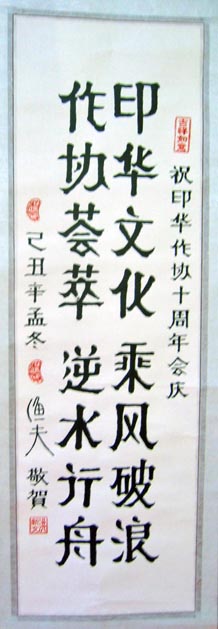 吉祥如意
祝印华作协十周年会庆
印华文化 乘风破浪
作协荟萃 逆水行舟
己丑辛孟冬
渔夫 敬賀